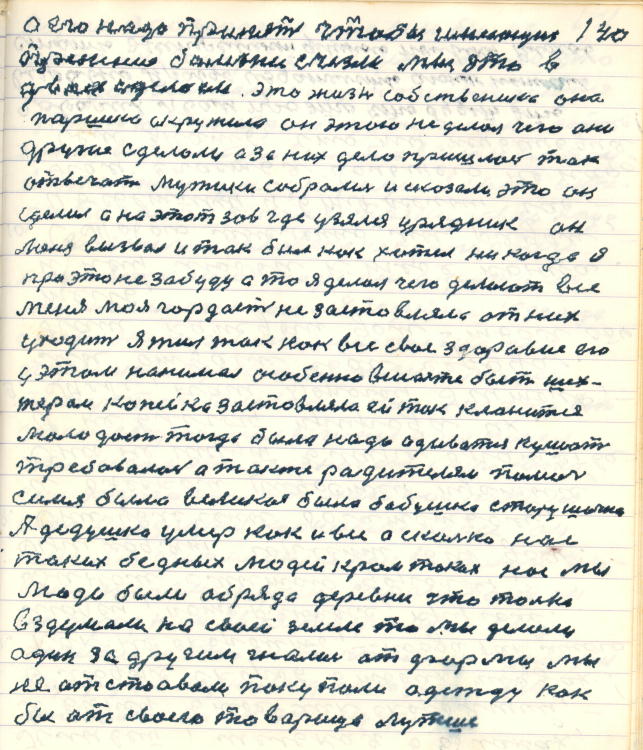 а его надо принять чтобы 130
прении больни сказали мы это в
двоих сделали. Это жизнь собственика она
паршива окружила он этого не делал чего они
другие сделоли а за них дело пришлось так
отвечать Мужики собрались и сказали это он
сделил а на этот зов где узялся урядник он
меня вызвал и так был как хотел никогда я
про это не забуду а то я делал чего делоют все
меня моя гордость не застовляла от них
уходит я жил так как все свое здоравие его
у этом нанимал особенно висичте быть ших-
тером копейка застовляла ей так кланится
молодост тогда была надо адиватся кушат
требовалось а также радителям помоч
симя была великая была бабушка старушичка
А дедушка умир как и все а сколко нас
таких бедных людей кром таких нас мы
люди были обряда деревни что толко
вздумали на своей земле то мы делоли
один за другим гнался от формы мы
не отстоавали покупали одежду как
бы от своего товарища лутше